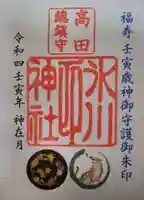 福寿 壬寅歳神御守護御朱印
高田
總鎮守
氷川
神社
令和四壬寅年 神在月